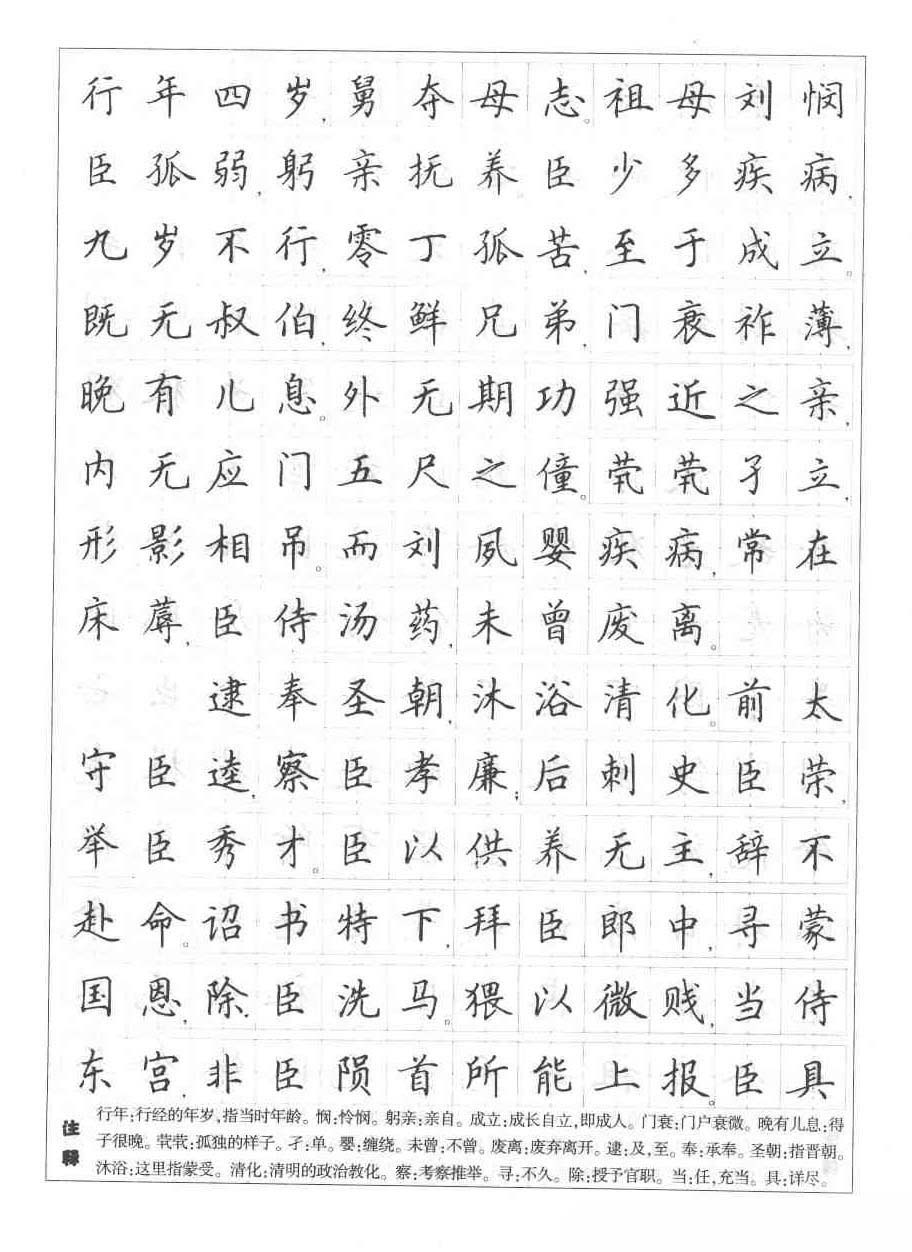 行年四岁,舅夺母志。祖母刘悯
臣孤弱,躬亲抚养臣少多疾病,
九岁不行,零丁孤苦,至于成立。
既无叔伯,终鲜兄弟,门衰祚薄,
晚有儿息。外无期功强近之亲,
内无应门五尺之僮。茕茕孑立,
形影相吊。而刘夙婴疾病,常在
床蓐,臣侍汤药,未曾废离。
逮奉圣朝,沐浴清化。前太
守臣逵,察臣孝廉;后刺史臣荣,
举臣秀才。臣以供养无主,辞不
赴命。诏书特下,拜臣郎中,寻蒙
国恩,除臣洗马。猥以微贱,当侍
东宫,非臣陨首所能上报。臣具
注释
行年:行经的年岁,指当时年龄。悯:怜悯。躬亲:亲自。成立:成长自立,即成人。门衰:门户衰微。晚有儿息:得
子很晚。茕茕:孤独的样子。孑:单。婴:缠绕。未曾:不曾。废离:废弃离开。逮:及,至。奉:承奉。圣朝:指晋朝。
沐浴:这里指蒙受。清化:清明的政治教化。察:考察推举。寻:不久。除:授予官职。当:任,充当。具:详尽。